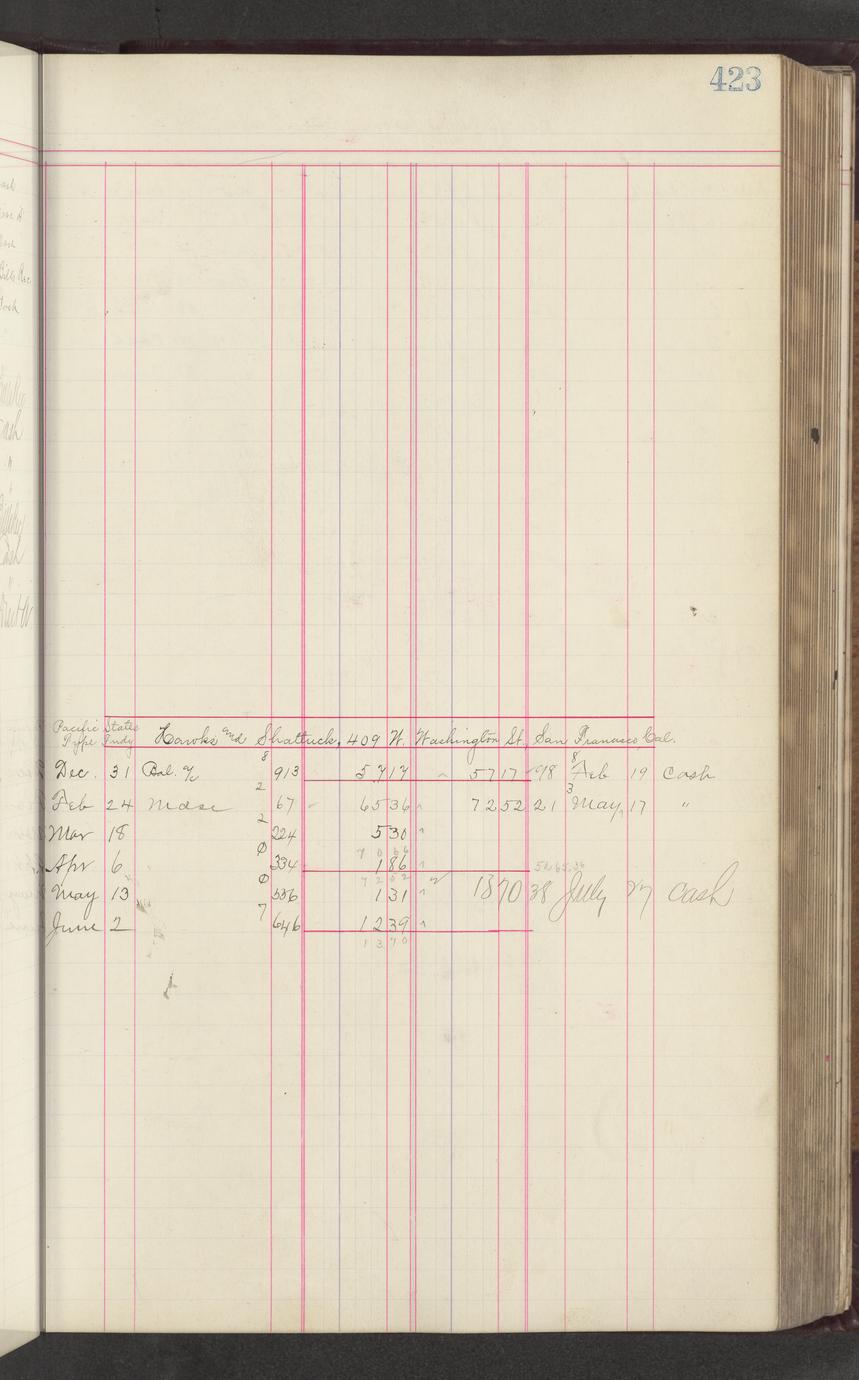 423
Pacific States Hawks and Shattuck, 409 W. Washington St., San Francisco Cal.
Type Fndy
Dec. 31 Bal. 8 913 5717 5717 98 8 Feb 19 Cash
Feb 24 Mdse 2 67 6536 7252 21 3 May, 17 "
Mar 18 2 224 530
7066
Apr 6 0 334 186
7252
May 13 0 536 131 1370 38 July 27 Cash
June 2 7 646 1239
1370